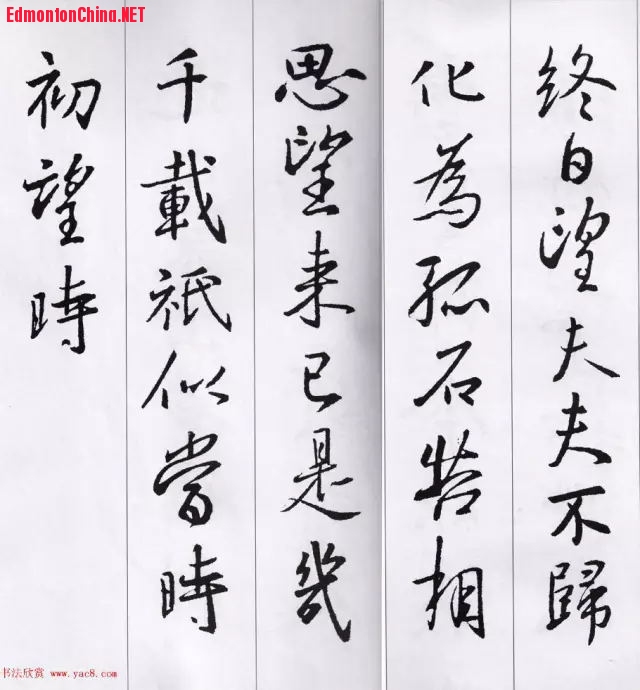 EdmontonChina.NET
終日望夫夫不歸
化為孤石相
思望来已是幾
千載祇似當時
初望時
书法欣赏 www.yac8.com